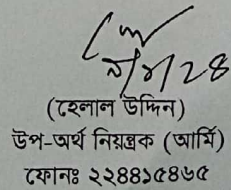 (হেলাল উদ্দিন)
উপ-অর্থ নিয়ন্ত্রক (আর্মি)
ফোনঃ ২২৪৪১৫৪৬৫